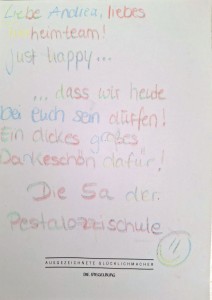 Liebe Andrea, liebes
heim-team!
just happy...
...dass wir heute
bei euch sein dürfen!
Ein dickes großes
Dankeschön dafür!
Die 5a der
Pestalozzischule
AUSGEZEICHNETE GLÜCKLICHMACHER